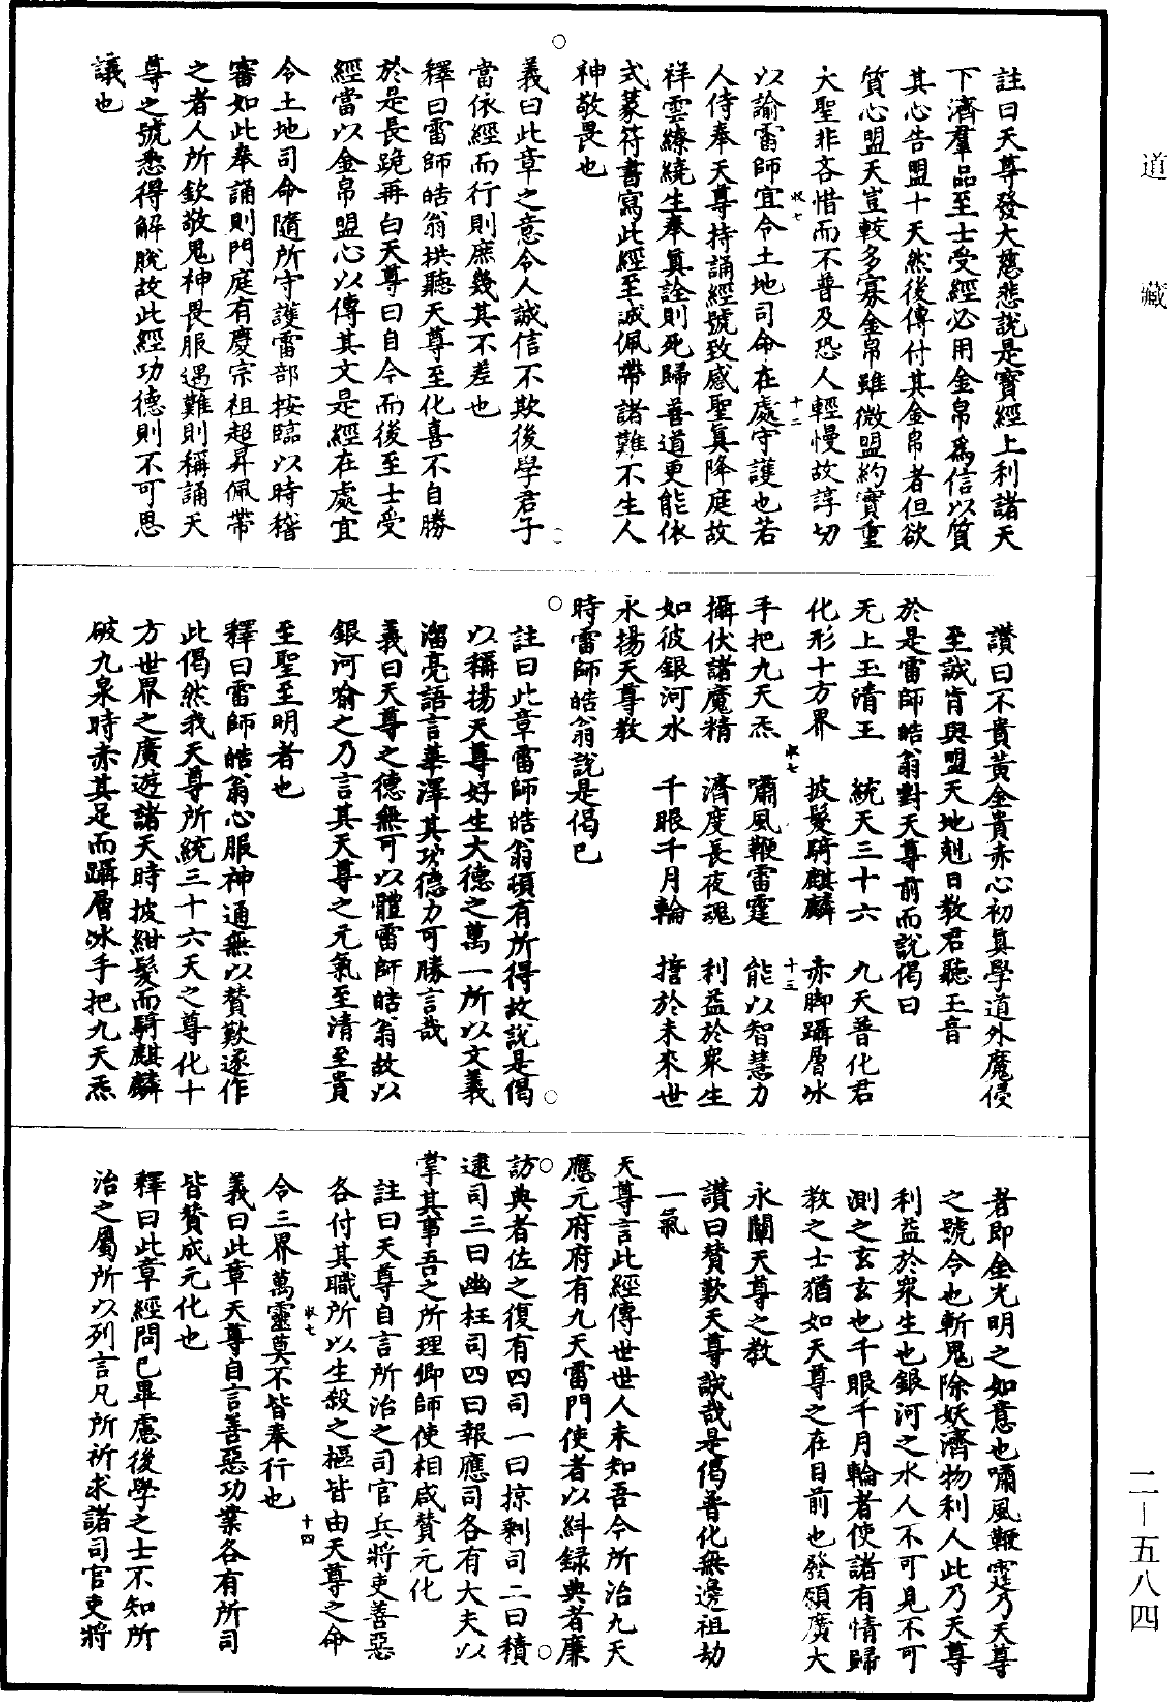 道藏
註曰天尊發大慈悲說是寶經上利諸天
下濟羣品至士受經必用金帛爲信以質
其心告盟十天然後傳付其金帛者但欲
質心盟天豈較多寡金帛雖微盟約實重
大聖非吝惜而不普及恐人輕慢故諄切
收七 十二
以諭雷師宜令土地司命在處守護也若
人侍奉天尊持誦經號致感聖眞降庭故
祥雲繚繞生奉眞詮則死歸善道更能依
式篆符書寫此經至誠佩帶諸難不生人
神敬畏也
義曰此章之意令人誠信不欺後學君子
當依經而行則庶幾其不差也
釋曰雷師皓翁拱聽天尊至化喜不自勝
於是長跪再白天尊曰自今而後至士受
經當以金帛盟心以傳其文是經在處宜
令土地司命隨所守護雷部按臨以時稽
審如此奉誦則門庭有慶宗祖超昇佩帶
之者人所欽敬鬼神畏服遇難則稱誦天
尊之號悉得解脫故此經功德則不可思
議也
讚曰不貴黃金貴赤心初眞學道外魔侵
至誠肯與盟天地剋日教君聽玉音
於是雷師皓翁對天尊前而說偈曰
无上玉清王 統天三十六 九天普化君
化形十方界 披髮騎麒麟 赤脚躡層冰
收七 十三
手把九天炁 嘯風鞭雷霆 能以智慧力
攝伏諸魔精 濟度長夜魂 利益於衆生
如彼銀河水 千眼千月輪 誓於未來世
永揚天尊教
時雷師皓翁說是偈已
註曰此章雷師皓翁頓有所得故說是偈
以稱揚天尊好生大德之萬一所以文義
溜亮語言華澤其功德力可勝言哉
義曰天尊之德無可以體雷師皓翁故以
銀河喻之乃言其天尊之元氣至清至貴
至聖至明者也
釋曰雷師皓翁心服神通無以贊歎遂作
此偈然我天尊所統三十六天之尊化十
方世界之廣遊諸天時披紺髮而騎麒麟
破九泉時赤其足而躡層冰手把九天炁
者即金光明之如意也嘯風鞭霆乃天尊
之號令也斬鬼除妖濟物利人此乃天尊
利益於衆生也銀河之水人不可見不可
測之玄玄也千眼千月輪者使諸有情歸
教之士猶如天尊之在目前也發願廣大
永闡天尊之教
讚曰贊歎天尊誠哉是偈普化無邊祖劫
一氣
天尊言此經傳世世人未知吾今所治九天
應元府府有九天雷門使者以糾録典者廉
訪典者佐之復有四司一曰掠剩司二曰積
逮司三曰幽枉司四曰報應司各有大夫以
掌其事吾之所理卿師使相咸贊元化
註曰天尊自言所治之司官兵將吏善惡
各付其職所以生殺之樞皆由天尊之命
收七 十四
令三界萬靈莫不皆奉行也
義曰此章天尊自言善惡功業各有所司
皆贊成元化也
釋曰此章經問已畢慮後學之士不知所
治之屬所以列言凡所祈求諸司官吏將
二—五八四